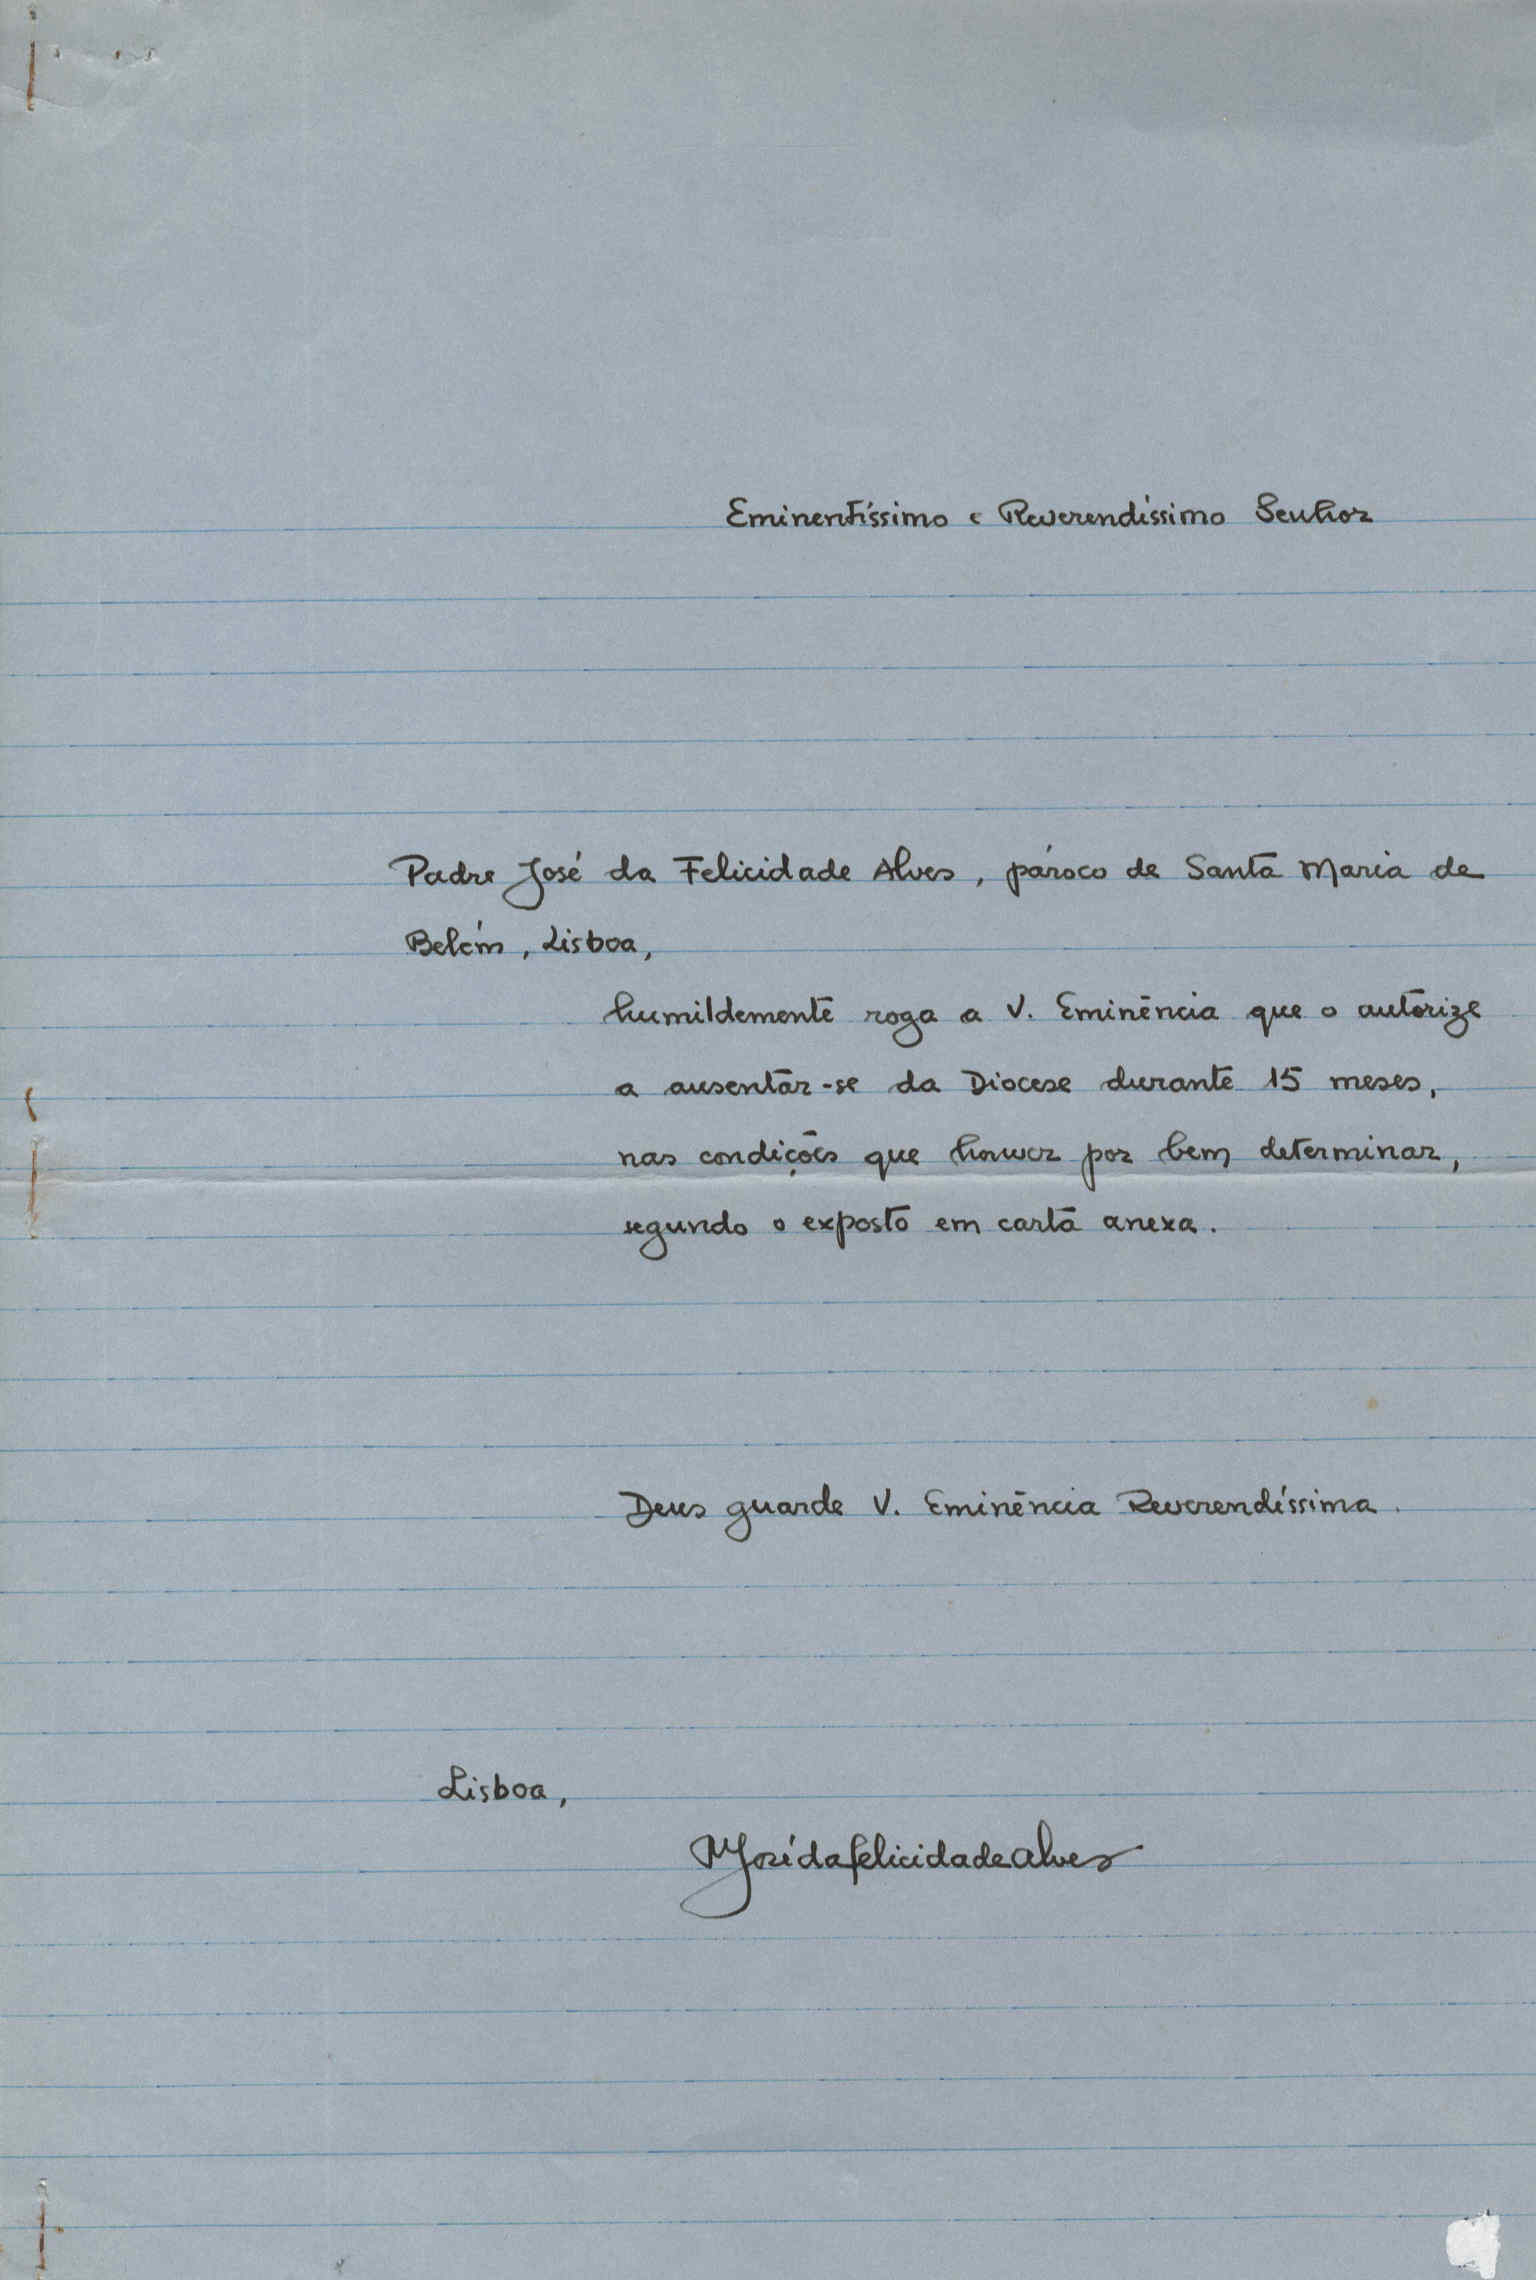 Eminentíssimo e Reverendíssimo Senhor
Padre José da Felicidade Alves, pároco de Santa Maria de
Belém, Lisboa,
humildemente roga a V. Eminência que o autorize
a ausentar-se da Diocese durante 15 meses,
nas condições que houver por bem determinar,
segundo o exposto em carta anexa.
Deus guarde V. Eminência Reverendíssima.
Lisboa,
José da Felicidade Alves